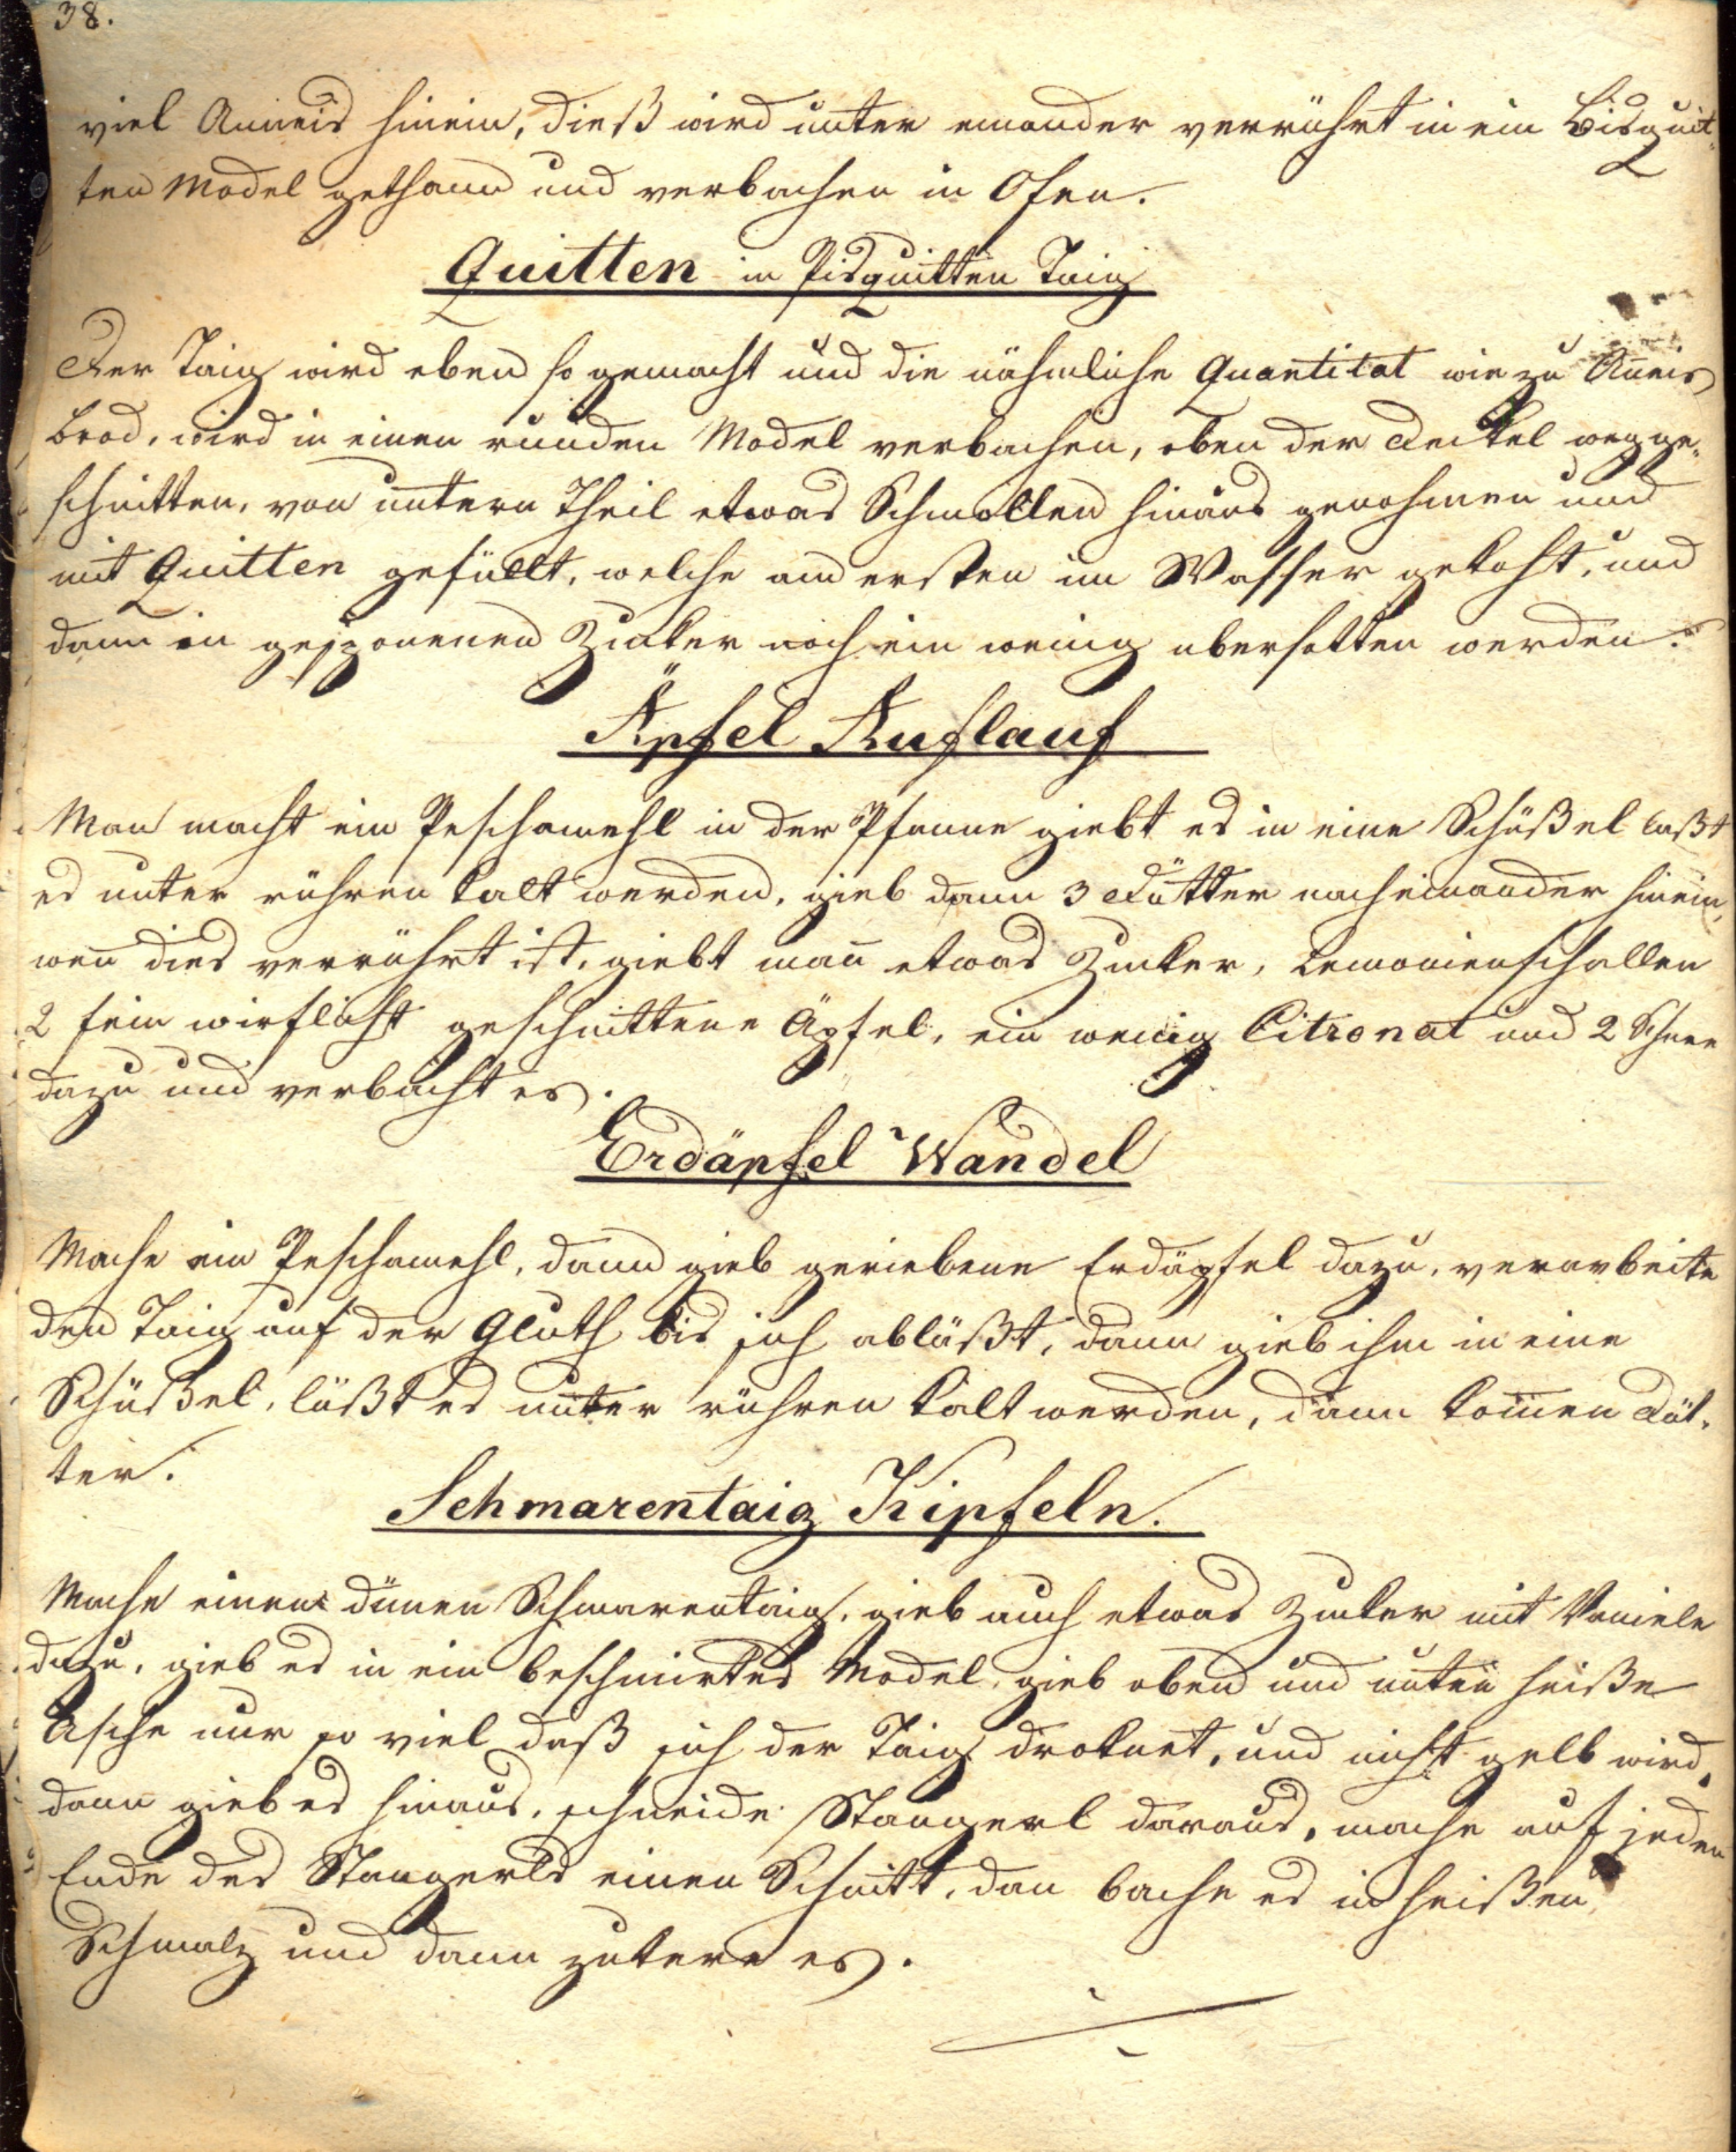 38.
viel Anneis hinein, dieß wird unter einander verrührt in ein Bisquit-
ten Model gethann und verbachen in Ofen.
Quitten in Pisquitten Taig
Der Taig wird eben so gemacht und die nähmliche Quantitat wie zu Aneis
brod, wird in einen runden Model verbachen, oben der Deckel wegge-
schnitten, von untern Theil etwas Schmollen hinaus genohmen und
mit Quitten gefüllt, welche am ersten im Wasser gekocht, und
dann in gesponenen Zucker noch ein wenig übersotten werden.
Äpfel Auflauf
Man macht ein Peschamehl in der Pfanne giebt es in eine Schüßel laßt
es unter rühren kalt werden, gieb dann 3 Dötter nacheinander hinein,
wen̄ dies verrührt ist, giebt man̄ etwas Zucker, Lemonienschallen
2 fein wirflicht geschnittene Äpfel, ein wenig Citronat und 2 Schnee
dazu und verbacht es.
Erdäpfel Wandel
Mache ein Peschamehl, dann gieb geriebene Erdäpfel dazu, verarbeite
den Taig auf der Gluth bis sich abläßt, dann gieb ihm in eine
Schüßel, läßt es unter rühren kalt werden, dann kom̄en Döt-
ter.
Schmarentaig Kipfeln.
Mache einen dünen Schmarentaig, gieb auch etwas Zucker mit Vaniele
dazu, gieb es in ein beschmirtes Model, gieb oben und unten heiße
Asche nur so viel daß sich der Taig droknet, und nicht gelb wird,
dann gieb es hinaus, schneide Stangerl daraus, mache auf jeden
Ende des Stangerls einen Schnitt, dan bache es in heißen
Schmalz und dann zukere es.